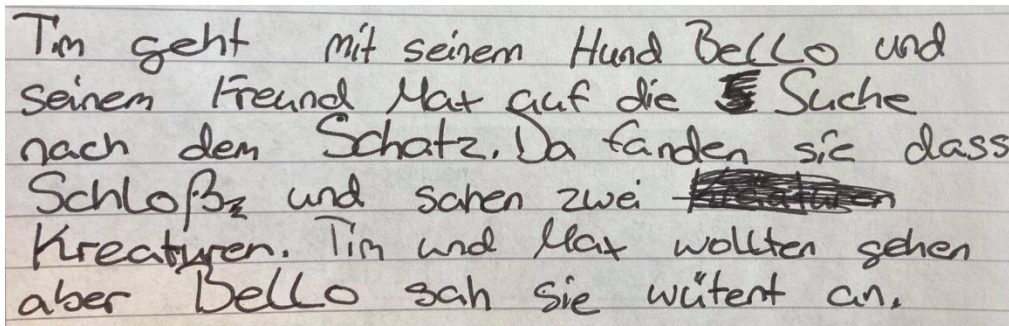 Tim geht mit seinem Hund Bello und
seinem Freund Max auf die Suche
nach dem Schatz. Da fanden sie dass
Schloß und sahen zwei
Kreaturen. Tim und Max wollten gehen
aber Bello sah sie wütent an.